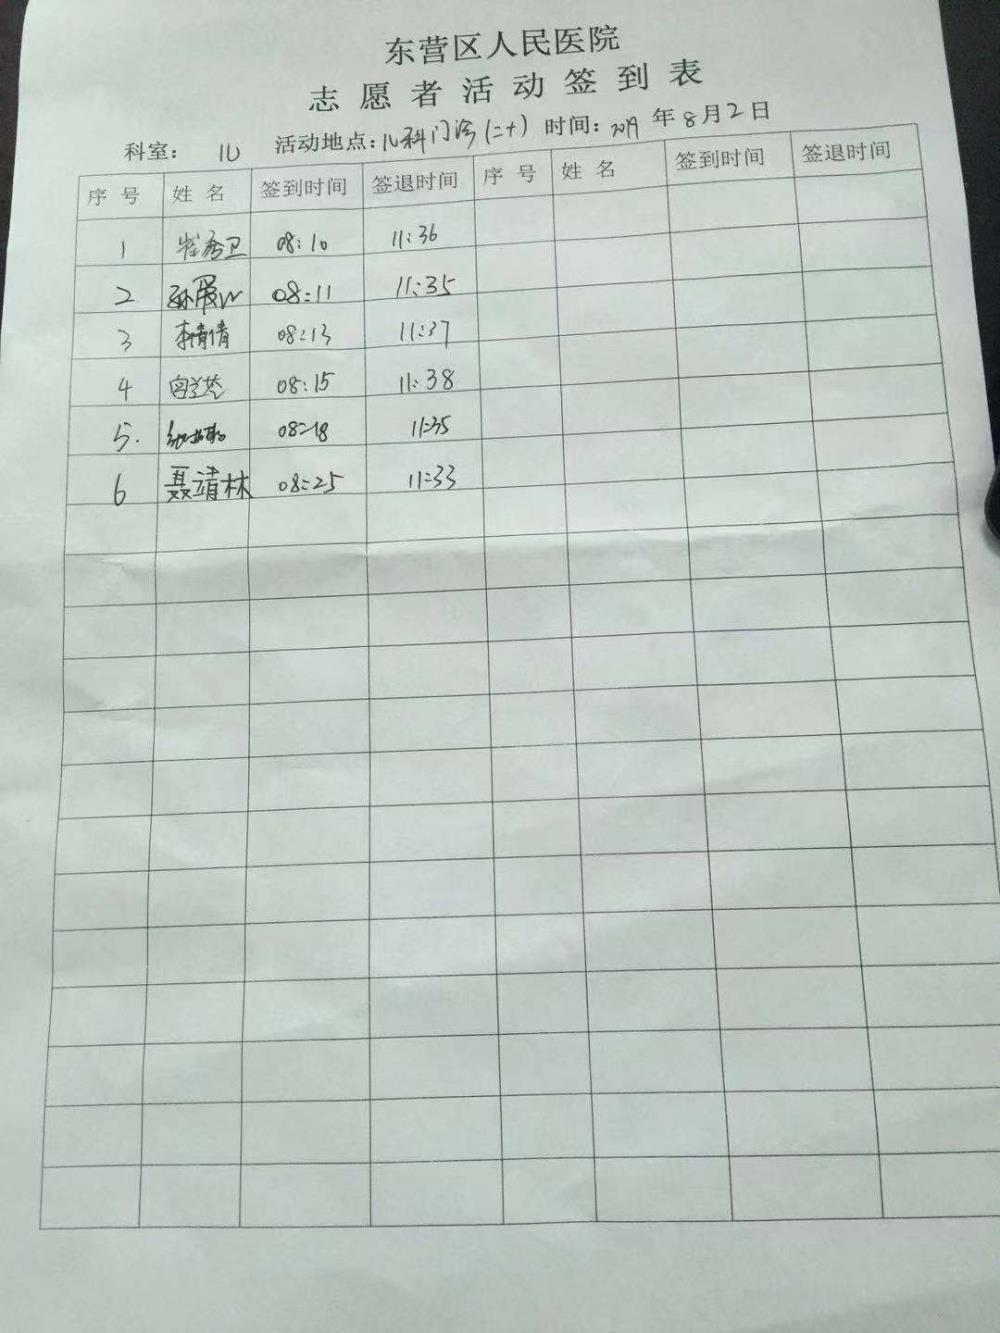 东营区人民医院
志愿者活动签到表
科室： 活动地点：儿科门诊(二+) 时间：2019年8月2日
序号 姓名 签到时间 签退时间 序号 姓名 签到时间 签退时间
1 崔秀卫 08:10 11:36
2 08:11 11:35
3 李倩倩 08:13 11:37
4 08:15 11:38
5. 08:18 11:35
6 聂靖林 08:25 11:33